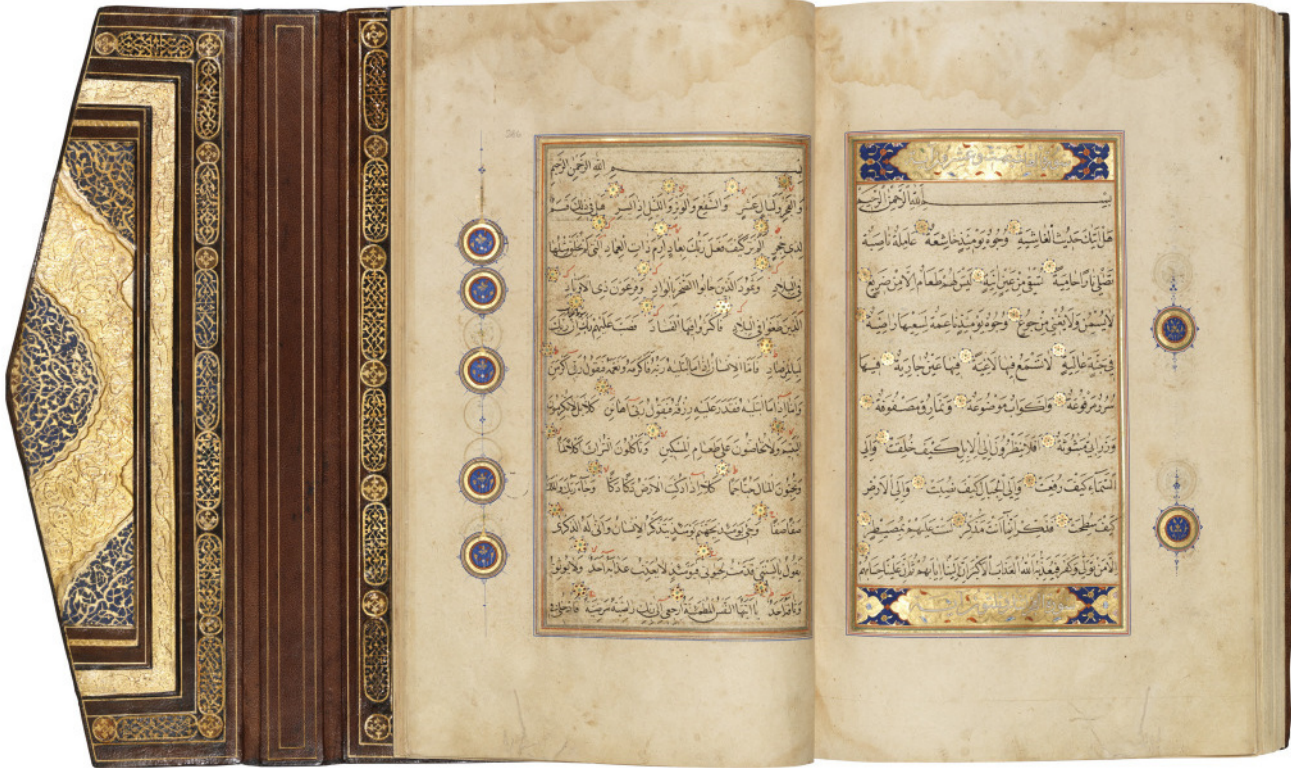 بسم الله الرحمن الرحيم
هل اتيك حديث الغاشية وجوه يومئذ خاشعة عاملة ناصبة
تصلى نارا حامية تسقى من عين انية ليس لهم طعام الا من ضريع
لا يسمن ولا يغني من جوع وجوه يومئذ ناعمة لسعيها راضية
في جنة عالية لا تسمع فيها لاغية فيها عين جارية فيها
سرر مرفوعة واكواب موضوعة ونمارق مصفوفة
وزرابي مبثوثة افلا ينظرون الى الابل كيف خلقت والى
السماء كيف رفعت والى الجبال كيف نصبت والى الارض
كيف سطحت فذكر انما انت مذكر لست عليهم بمصيطر
الا من تولى وكفر فيعذبه الله العذاب الاكبر ان الينا ايابهم ثم ان علينا حسابهم
بسم الله الرحمن الرحيم
والفجر وليال عشر والشفع والوتر والليل اذا يسر هل في ذلك قسم
لذي حجر الم تر كيف فعل ربك بعاد ارم ذات العماد التي لم يخلق مثلها
في البلاد وثمود الذين جابوا الصخر بالواد وفرعون ذي الاوتاد
الذين طغوا في البلاد فاكثروا فيها الفساد فصب عليهم ربك ان ربك
لبالمرصاد فاما الانسان اذا ما ابتليه ربه فاكرمه ونعمه فيقول ربي اكرمن
واما اذا ما ابتليه فقدر عليه رزقه فيقول ربي اهانن كلا بل لا تكرمون
اليتيم ولا تحاضون على طعام المسكين وتاكلون التراث اكلا لما
وتحبون المال حبا جما كلا اذا دكت الارض دكا دكا وجاء ربك والملك
صفا صفا وجيء يومئذ بجهنم يومئذ يتذكر الانسان وانى له الذكرى
يقول يا ليتني قدمت لحيوتي فيومئذ لا يعذب عذابه احد ولا يوثق
وثاقه احد يا ايتها النفس المطمئنة ارجعي الى ربك راضية مرضية فادخلي